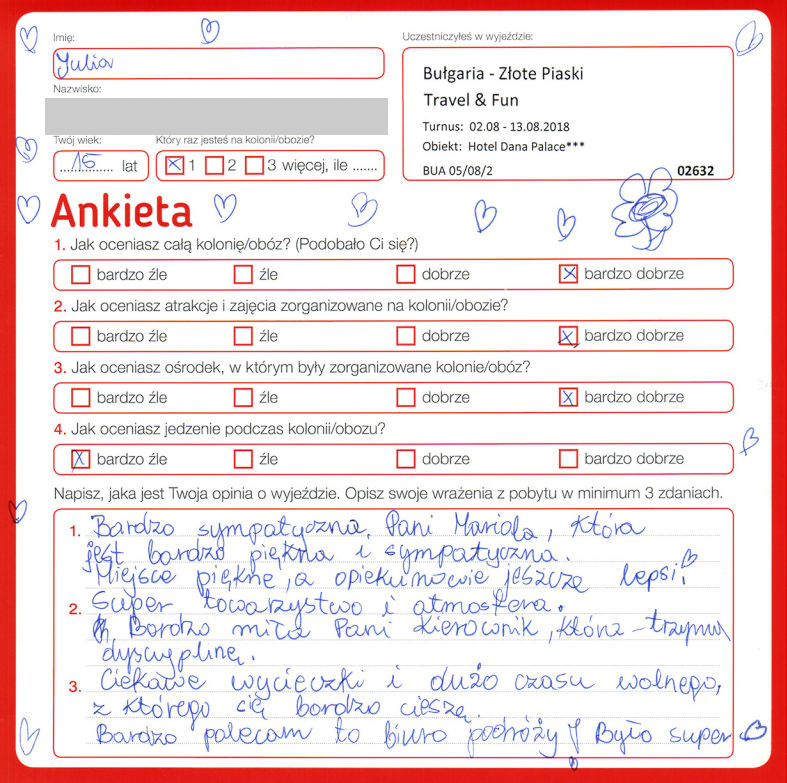 Imię:
Julia
Uczestniczyłeś w wyjeździe:
Bułgaria - Złote Piaski
Travel & Fun
Turnus: 02.08 - 13.08.2018
Obiekt: Hotel Dana Palace***
BUA 05/08/2
02632
Nazwisko:
Twój wiek:
15 lat
Który raz jesteś na kolonii/obozie?
1 2 3 więcej, ile .......
Ankieta
1. Jak oceniasz całą kolonię/obóz? (Podobało Ci się?)
bardzo źle źle dobrze bardzo dobrze
2. Jak oceniasz atrakcje i zajęcia zorganizowane na kolonii/obozie?
bardzo źle źle dobrze bardzo dobrze
3. Jak oceniasz ośrodek, w którym były zorganizowane kolonie/obóz?
bardzo źle źle dobrze bardzo dobrze
4. Jak oceniasz jedzenie podczas kolonii/obozu?
bardzo źle źle dobrze bardzo dobrze
Napisz, jaka jest Twoja opinia o wyjeździe. Opisz swoje wrażenia z pobytu w minimum 3 zdaniach.
1. Bardzo sympatyczna, Pani Mariola, która
jest bardzo piękna i sympatyczna.
Miejsce piękne, a opiekunowie jeszcze lepsi!
2. Super towarzystwo i atmosfera.
Bardzo miła Pani kierownik, która trzyma
dyscyplinę.
3. Ciekawe wycieczki i dużo czasu wolnego,
z którego się bardzo cieszę.
Bardzo polecam to biuro podróży! Było super